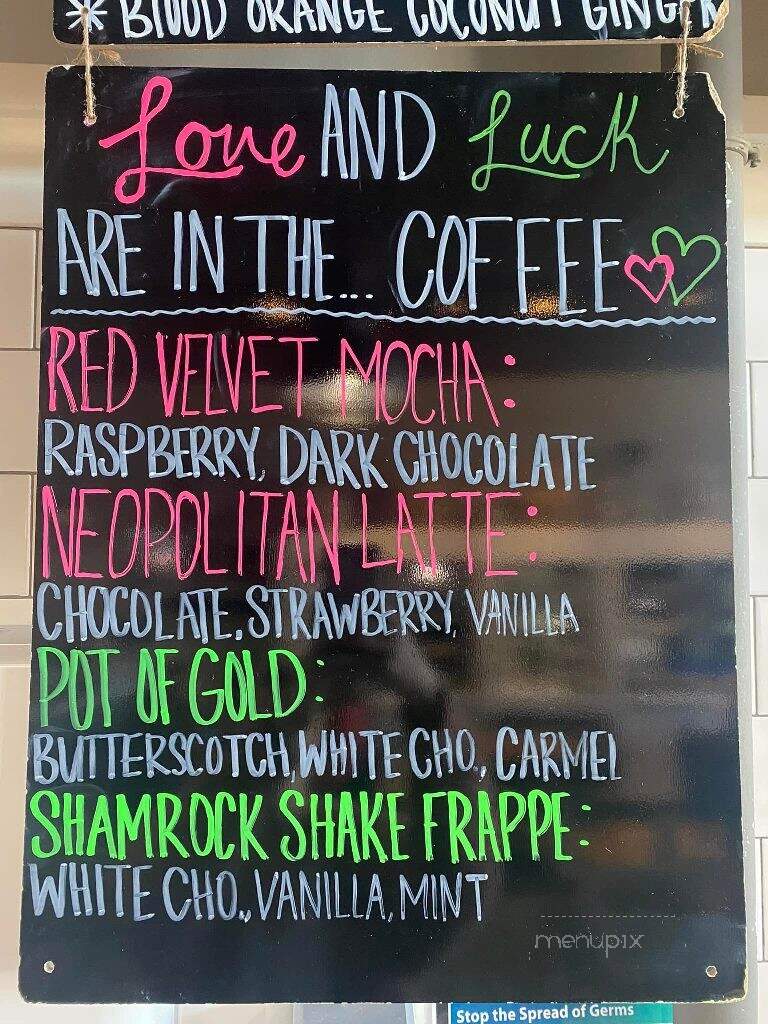 * BLOOD ORANGE COCONUT GINGER
Love AND Luck
ARE IN THE... COFFEE
RED VELVET MOCHA:
RASPBERRY, DARK CHOCOLATE
NEOPOLITAN LATTE:
CHOCOLATE, STRAWBERRY, VANILLA
POT OF GOLD:
BUTTERSCOTCH, WHITE CHO., CARMEL
SHAMROCK SHAKE FRAPPE:
WHITE CHO., VANILLA, MINT
menupix
Stop the Spread of Germs